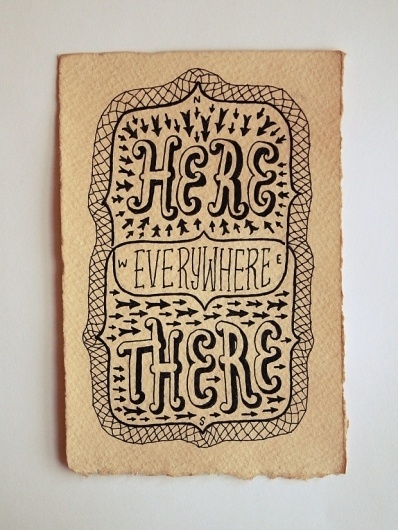 N
HERE
W EVERYWHERE E
THERE
S